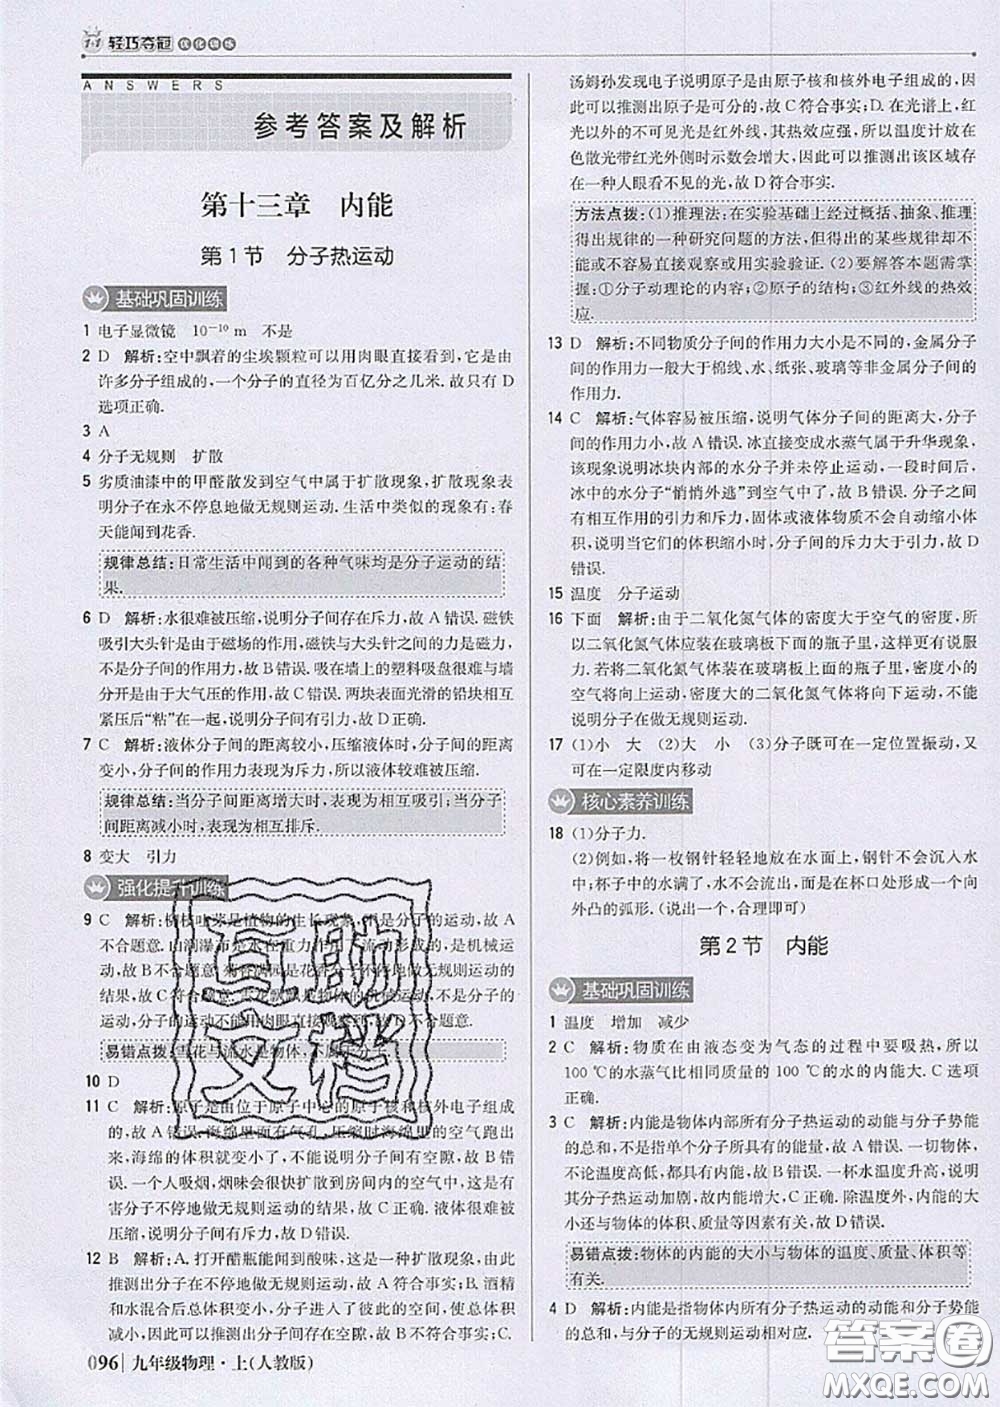 1+1 轻巧夺冠 优化训练
ANSWERS
参考答案及解析
第十三章 内能
第1节 分子热运动
基础巩固训练
1 电子显微镜 10⁻¹⁰ m 不是
2 D 解析:空中飘着的尘埃颗粒可以用肉眼直接看到,它是由
许多分子组成的,一个分子的直径为百亿分之几米.故只有 D
选项正确.
3 A
4 分子无规则 扩散
5 劣质油漆中的甲醛散发到空气中属于扩散现象,扩散现象表
明分子在永不停息地做无规则运动.生活中类似的现象有:春
天能闻到花香.
规律总结:日常生活中闻到的各种气味均是分子运动的结
果.
6 D 解析:水很难被压缩,说明分子间存在斥力,故 A 错误.磁铁
吸引大头针是由于磁场的作用,磁铁与大头针之间的力是磁力,
不是分子间的作用力,故 B 错误.吸在墙上的塑料吸盘很难与墙
分开是由于大气压的作用,故 C 错误.两块表面光滑的铅块相互
紧压后“粘”在一起,说明分子间有引力,故 D 正确.
7 C 解析:液体分子间的距离较小,压缩液体时,分子间距离
变小,分子间的作用力表现为斥力,所以液体较难被压缩.
规律总结:当分子间距离增大时,表现为相互吸引;当分子
间距离减小时,表现为相互排斥.
8 变大 引力
强化提升训练
9 C 解析:柳枝吐芽是植物的生长现象,不是分子的运动,故 A
不合题意.由湖瀑布是水在重力作用下流动形成的,是机械运
动,故 B 不合题意.菊香满园是花香分子不停地做无规则运动的
结果,故 C 符合题意.雪花飘飘是物体的机械运动,不是分子的
运动,分子的运动不能用肉眼直接观察到,故 D 不合题意.
易错点拨:雪花与流水是物体,不属于分子.
10 D
11 C 解析:原子是由位于原子中心的原子核和核外电子组成
的,故 A 错误.海绵里面有气孔,压缩时海绵里的空气跑出
来,海绵的体积就变小了,不能说明分子间有空隙,故 B 错
误.一个人吸烟,烟味会很快扩散到房间内的空气中,这是有
害分子不停地做无规则运动的结果,故 C 正确.扫地时尘土
飞扬,说明分子在做机械运动,故 D 错误.
12 B 解析:A.打开醋瓶能闻到酸味,这是一种扩散现象,由此
推测出分子在不停地做无规则运动,故 A 符合事实;B.酒精
和水混合后总体积变小,分子进入了彼此的空间,使总体积
减小,因此可以推测出分子间存在空隙,故 B 不符合事实;C.
096 九年级物理·上(人教版)
汤姆孙发现电子说明原子是由原子核和核外电子组成的,
因此可以推测出原子是可分的,故 C 符合事实;D.在光谱上,红
光以外的不可见光是红外线,其热效应强,所以温度计放在
色散光带红光外侧时示数会增大,因此可以推测出该区域存
在一种人眼看不见的光,故 D 符合事实.
方法点拨:(1)推理法:在实验基础上经过概括、抽象、推理
得出规律的一种研究问题的方法,但得出的某些规律却不
能或不容易直接观察或用实验验证.(2)要解答本题需掌
握:①分子动理论的内容;②原子的结构;③红外线的热效
应.
13 D 解析:不同物质分子间的作用力大小是不同的,金属分子
间的作用力一般大于棉线、水、纸张、玻璃等非金属分子间的
作用力.
14 C 解析:气体容易被压缩,说明气体分子间的距离大,分子
间的作用力小,故 A 错误.冰直接变成水蒸气属于升华现象,
该现象说明冰块内部的水分子并未停止运动,一段时间后,
冰中的水分子“悄悄外逃”到空气中了,故 B 错误.分子之间
有相互作用的引力和斥力,固体或液体物质不会自动缩小体
积,说明当它们的体积缩小时,分子间的斥力大于引力,故 D
错误.
15 温度 分子运动
16 下面 解析:由于二氧化氮气体的密度大于空气的密度,所
以二氧化氮气体应装在玻璃板下面的瓶子里,这样更有说服
力.若将二氧化氮气体装在玻璃板上面的瓶子里,密度小的
空气将向上运动,密度大的二氧化氮气体将向下运动,不能
说明分子在做无规则运动.
17 (1)小 大 (2)大 小 (3)分子既可在一定位置振动,又
可在一定限度内移动
核心素养训练
18 (1)分子力.
(2)例如,将一枚钢针轻轻地放在水面上,钢针不会沉入水
中;杯子中的水满了,水不会流出,而是在杯口处形成一个向
外凸的弧形.(说出一个,合理即可)
第2节 内能
基础巩固训练
1 温度 增加 减少
2 C 解析:物质在由液态变为气态的过程中要吸热,所以
100 ℃的水蒸气比相同质量的 100 ℃的水的内能大,故 C
正确.
3 C 解析:内能是物体内部所有分子热运动的动能与分子势能
的总和,不是指单个分子所具有的能量,故 A 错误.一切物体,
不论温度高低,都具有内能,故 B 错误.一杯水温度升高,说明
其分子热运动加剧,故内能增大,C 正确.除温度外,内能的大
小还与物体的体积、质量等因素有关,故 D 错误.
易错点拨:物体的内能的大小与物体的温度、质量、体积等
有关.
4 D 解析:内能是指物体内所有分子热运动的动能和分子势能
的总和,与分子的无规则运动相对应.
互助
文档
答案圈
MXQE.COM